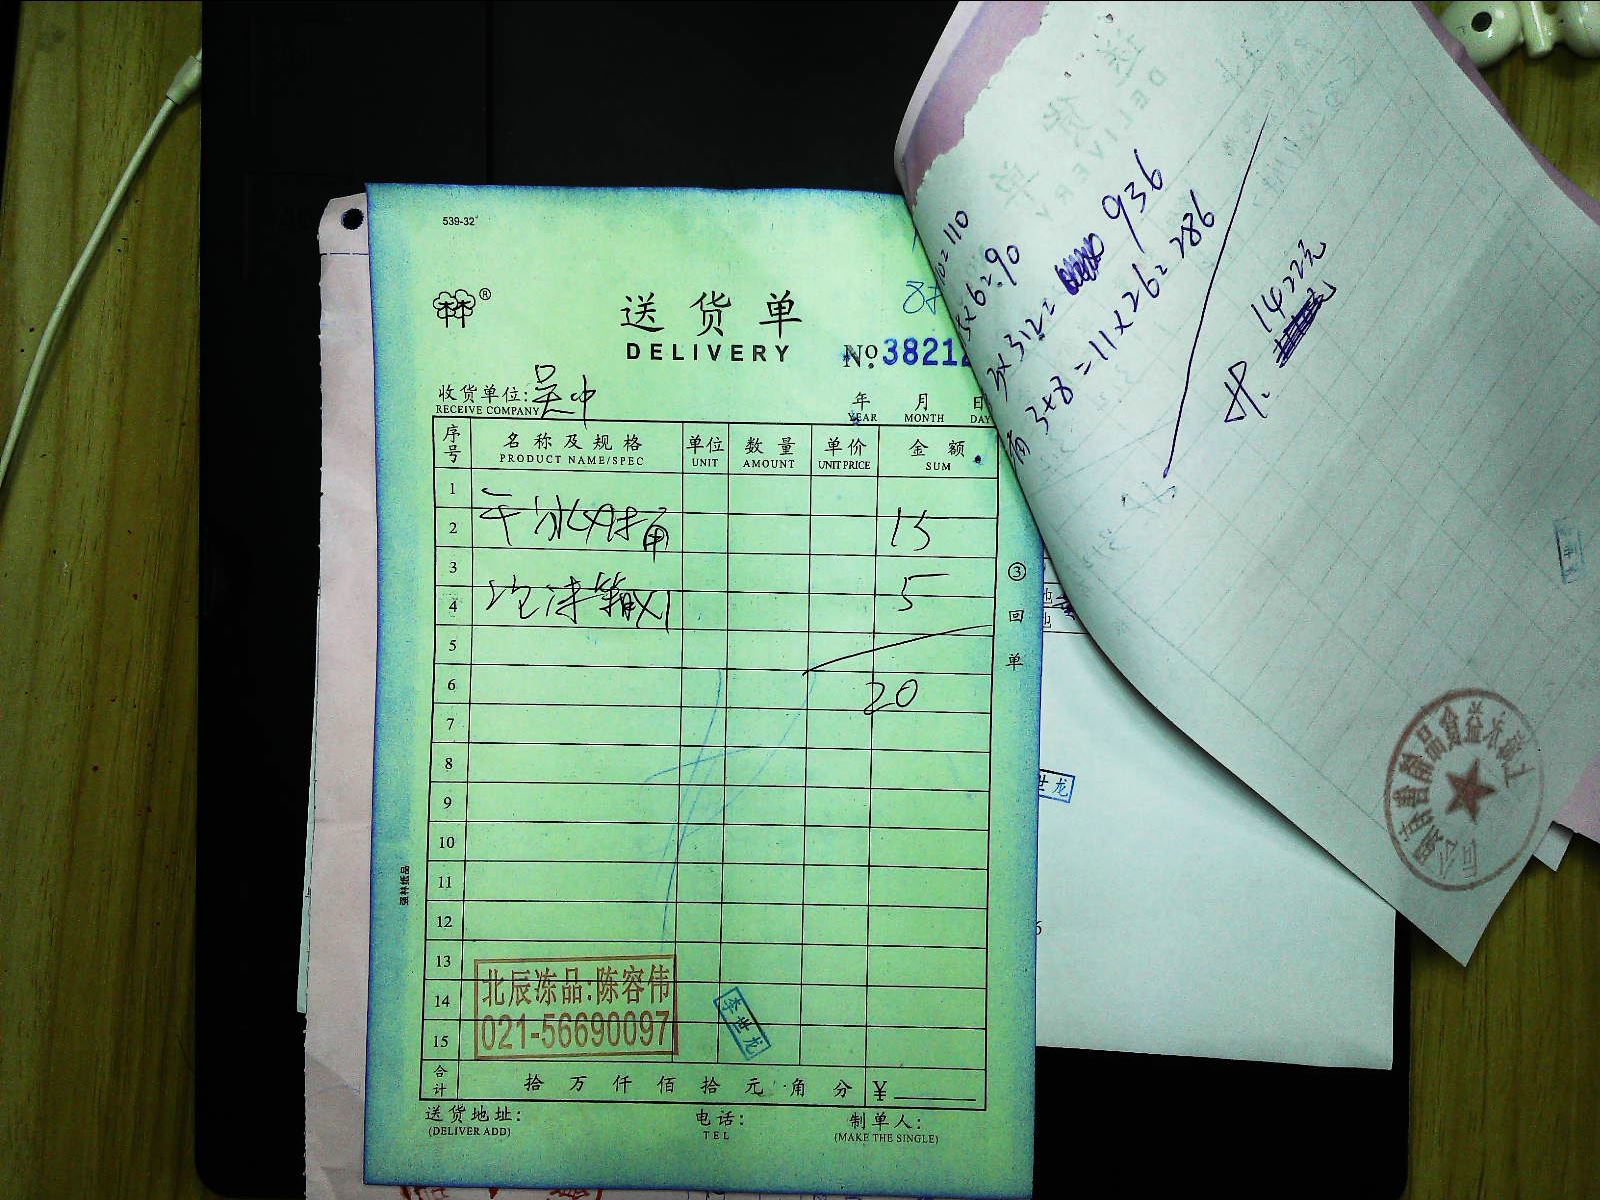 539-32
®
送货单
DELIVERY
№ 3821
收货单位: 吴中
RECEIVE COMPANY
年 月 日
YEAR MONTH DAY
序号 名称及规格 单位 数量 单价 金额
PRODUCT NAME/SPEC UNIT AMOUNT UNIT PRICE SUM
1
2 干冰 15
3
4 泡沫箱X1 5
5
6 20
7
8
9
10
11
12
13
14
15
北辰冻品:陈容伟
021-56690097
李世龙
合计 拾 万 仟 佰 拾 元 角 分 ¥
送货地址: 电话: 制单人:
(DELIVER ADD) TEL (MAKE THE SINGLE)
③ 回单
强林纸品
10=110
5x6=90
3x312= 936
3+8=11x26=286
1422元
世龙